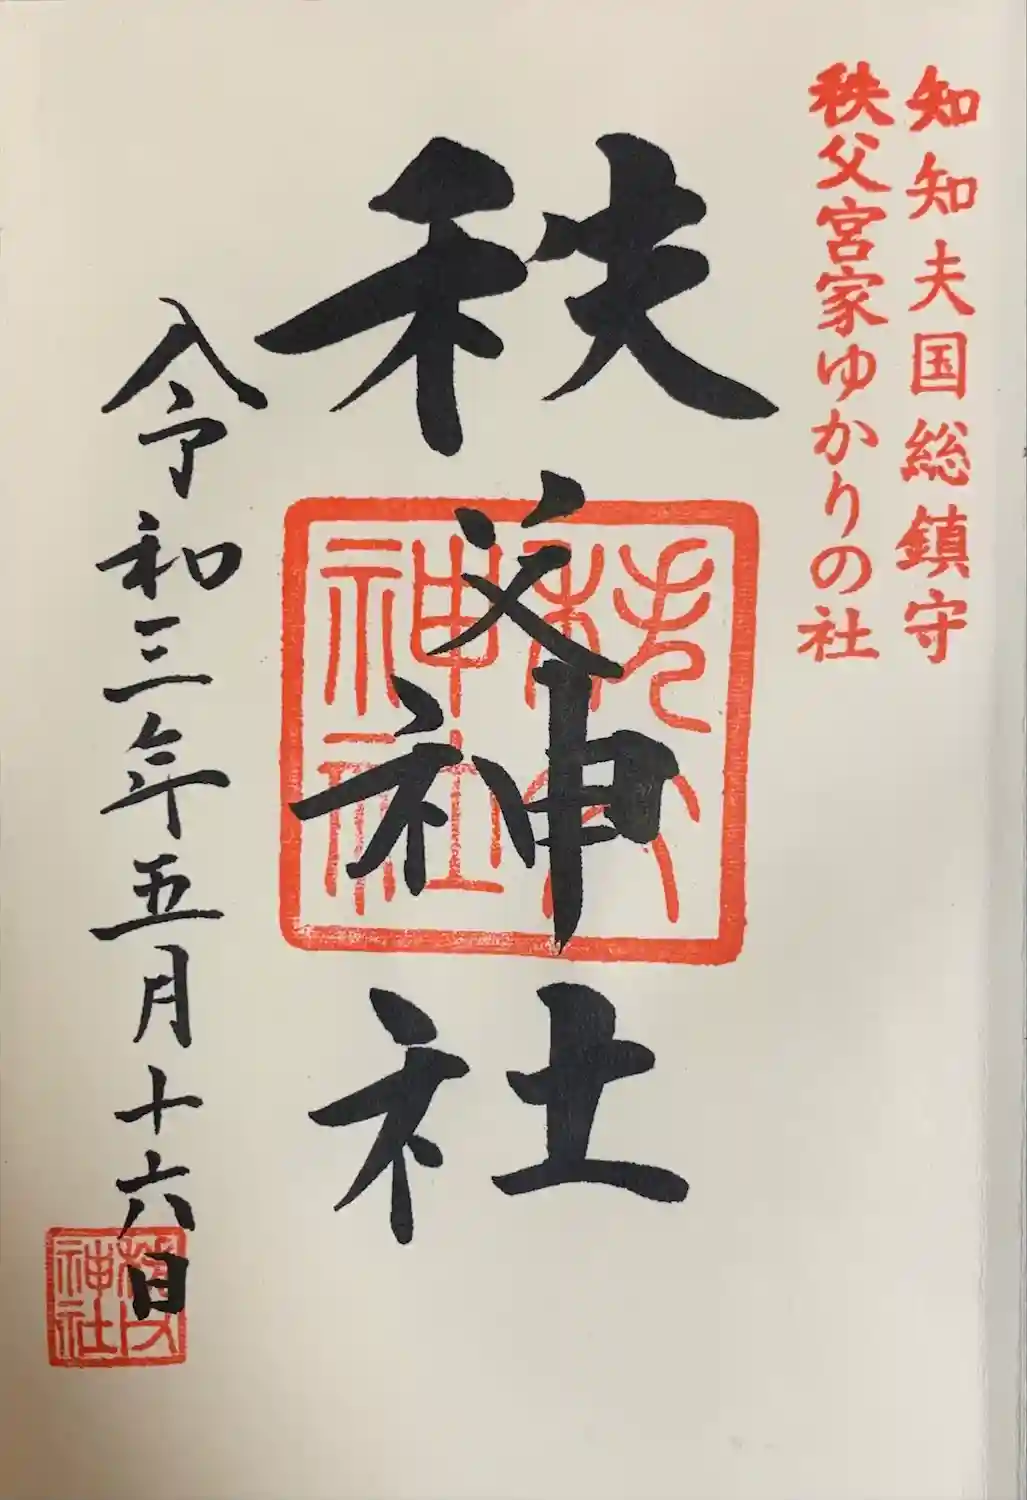 知知夫国総鎮守
秩父宮家ゆかりの社
秩父神社
秩父神社
令和三年五月十六日
秩父神社